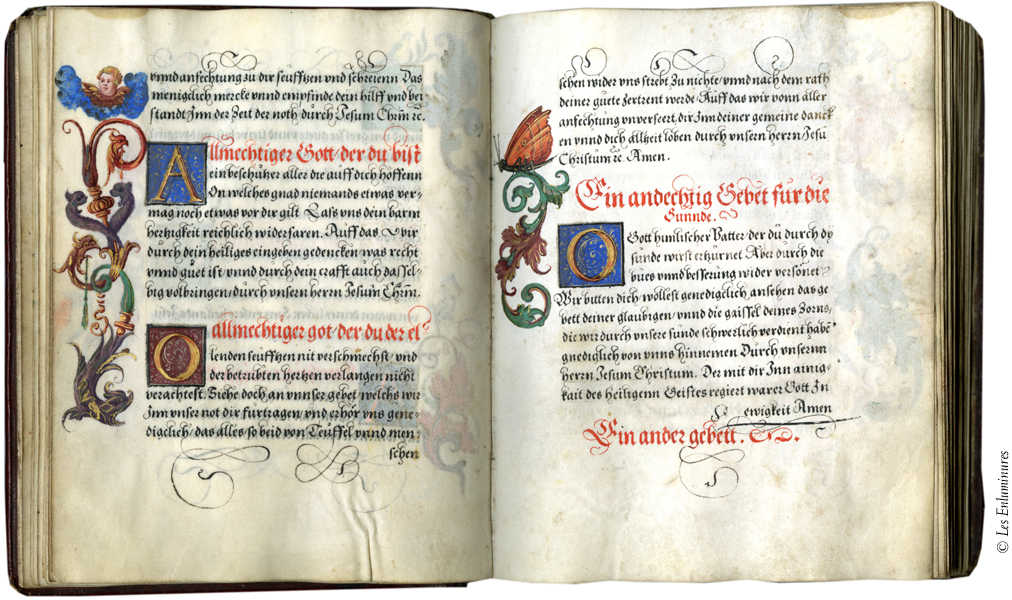 vnnd anfechtung zu dir seuffzen vnd schreienn Das
meniglich mercke vnnd empfinde dein hilff vnd bei
standt Inn der Zeit der noth durch Jesum Chrm ꝛc.
Allmechtiger Gott / der du bist
ein beschützer aller die auff dich hoffenn
On welches gnad niemands etwas ver-
mag noch etwas vor dir gilt Laß vns dein barm
hertzigkeit reichlich widerfaren. Auff das Wir
durch dein heiliges eingeben gedencken was recht
vnnd guet ist vnnd durch dein crafft auch dassel-
big volbringen / durch vnsern herrn Jesum Chrm.
O allmechtiger got / der du der el
lenden seuffzen nit verschmechst / vnd
der betrubten hertzen verlangen nicht
verachtest. Siehe doch an vnnser gebet / welchs wir
Inn vnser not dir furtragen / vnd erhör vns gene-
digclich / das alles so beid von Teuffel vnnd men-
schen
schen wider vns strebt Zu nichte / vnnd nach dem rath
deiner guete Zertrent werde / Auff das wir vonn aller
anfechtung vnversert / dir Inn deiner gemeine danck
en vnnd dich allzeit loben durch vnsern herrn Jesu
Christum ꝛc Amen.
Ein andechtig Gebet fur die
Sunnde.
O Gott himlischer Vatter / der du durch dy
sunde wirst erzurnet Aber durch die
bues vnnd besserung wider versonet
Wir bitten dich / wollest genedigclich ansehen das ge
bett deiner glaubigen / vnnd die gaissel deines Zorns,
die wir durch vnsere sunde schwerlich verdient habē
gnediglich von vnns hinnemen Durch vnsernn
herrn Jesum Christum. Der mit dir Inn ainig-
kait des heiligenn Geistes regiert warer Gott Zu
ewigkeit Amen
Ein ander gebett.
© Les Enluminures